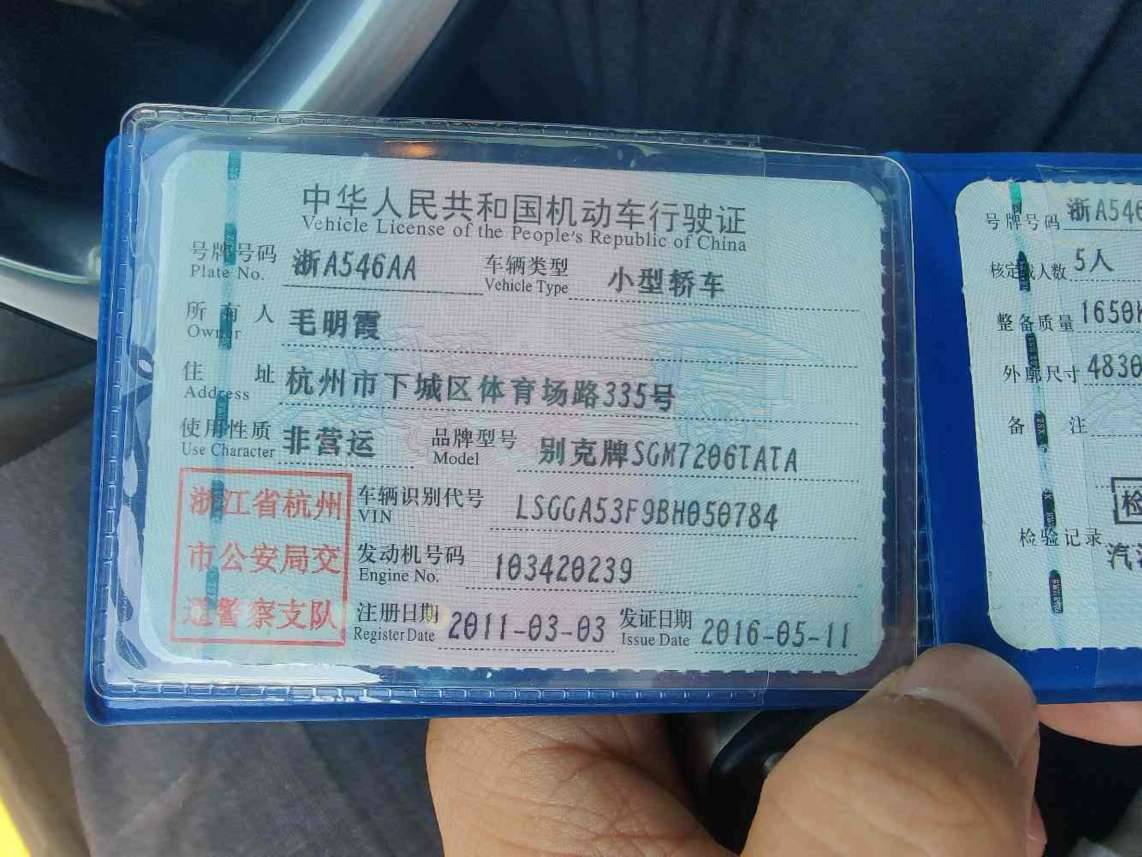 中华人民共和国机动车行驶证
Vehicle License of the People's Republic of China
号牌号码 浙A546AA 车辆类型 小型轿车
Plate No. Vehicle Type
所有人 毛明霞
Owner
住址 杭州市下城区体育场路335号
Address
使用性质 非营运 品牌型号 别克牌SGM7206TATA
Use Character Model
浙江省杭州
市公安局交
通警察支队
车辆识别代号 LSGGA53F9BH050784
VIN
发动机号码 103420239
Engine No.
注册日期 2011-03-03 发证日期 2016-05-11
Register Date Issue Date
号牌号码 浙A546
核定载人数 5人
整备质量 1650
外廓尺寸 4830
备注
检
检验记录 汽